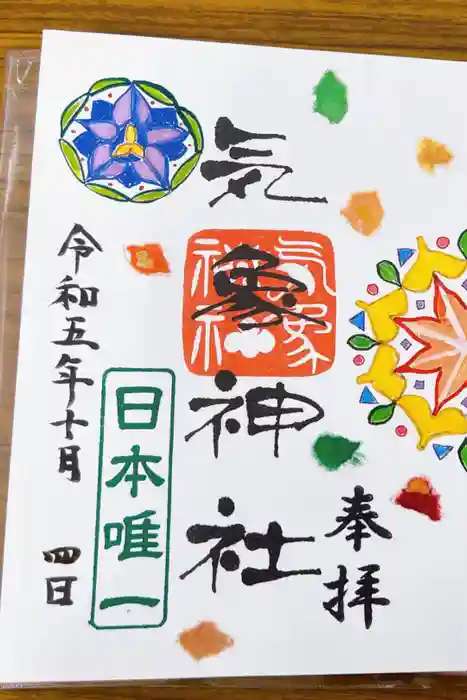 奉拝
気象神社
気象神社
日本唯一
令和五年十月
四日